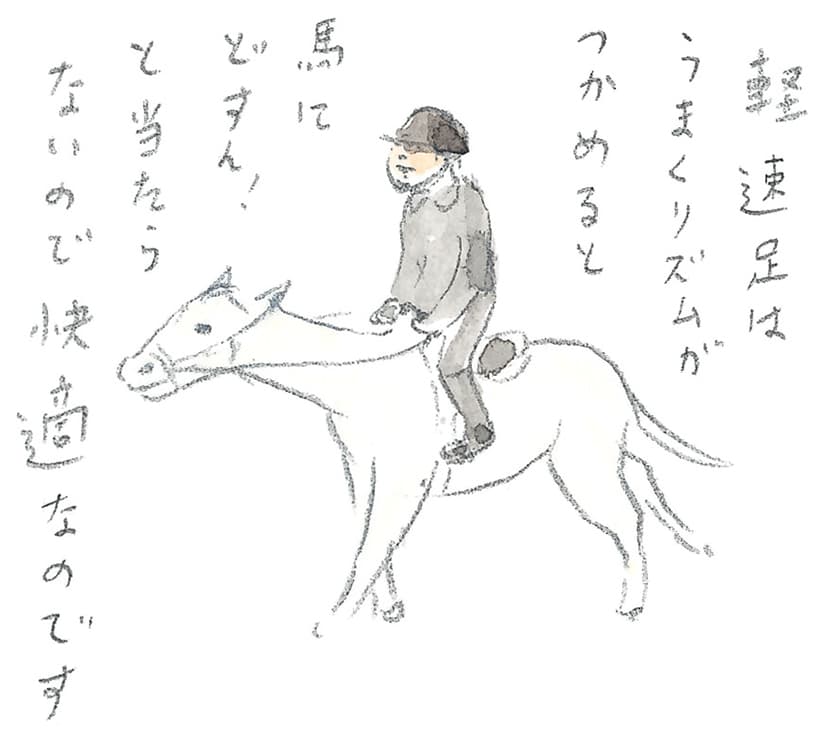 軽速足は
うまくリズムが
つかめると
馬に
どすん!
と当たら
ないので快適なのです